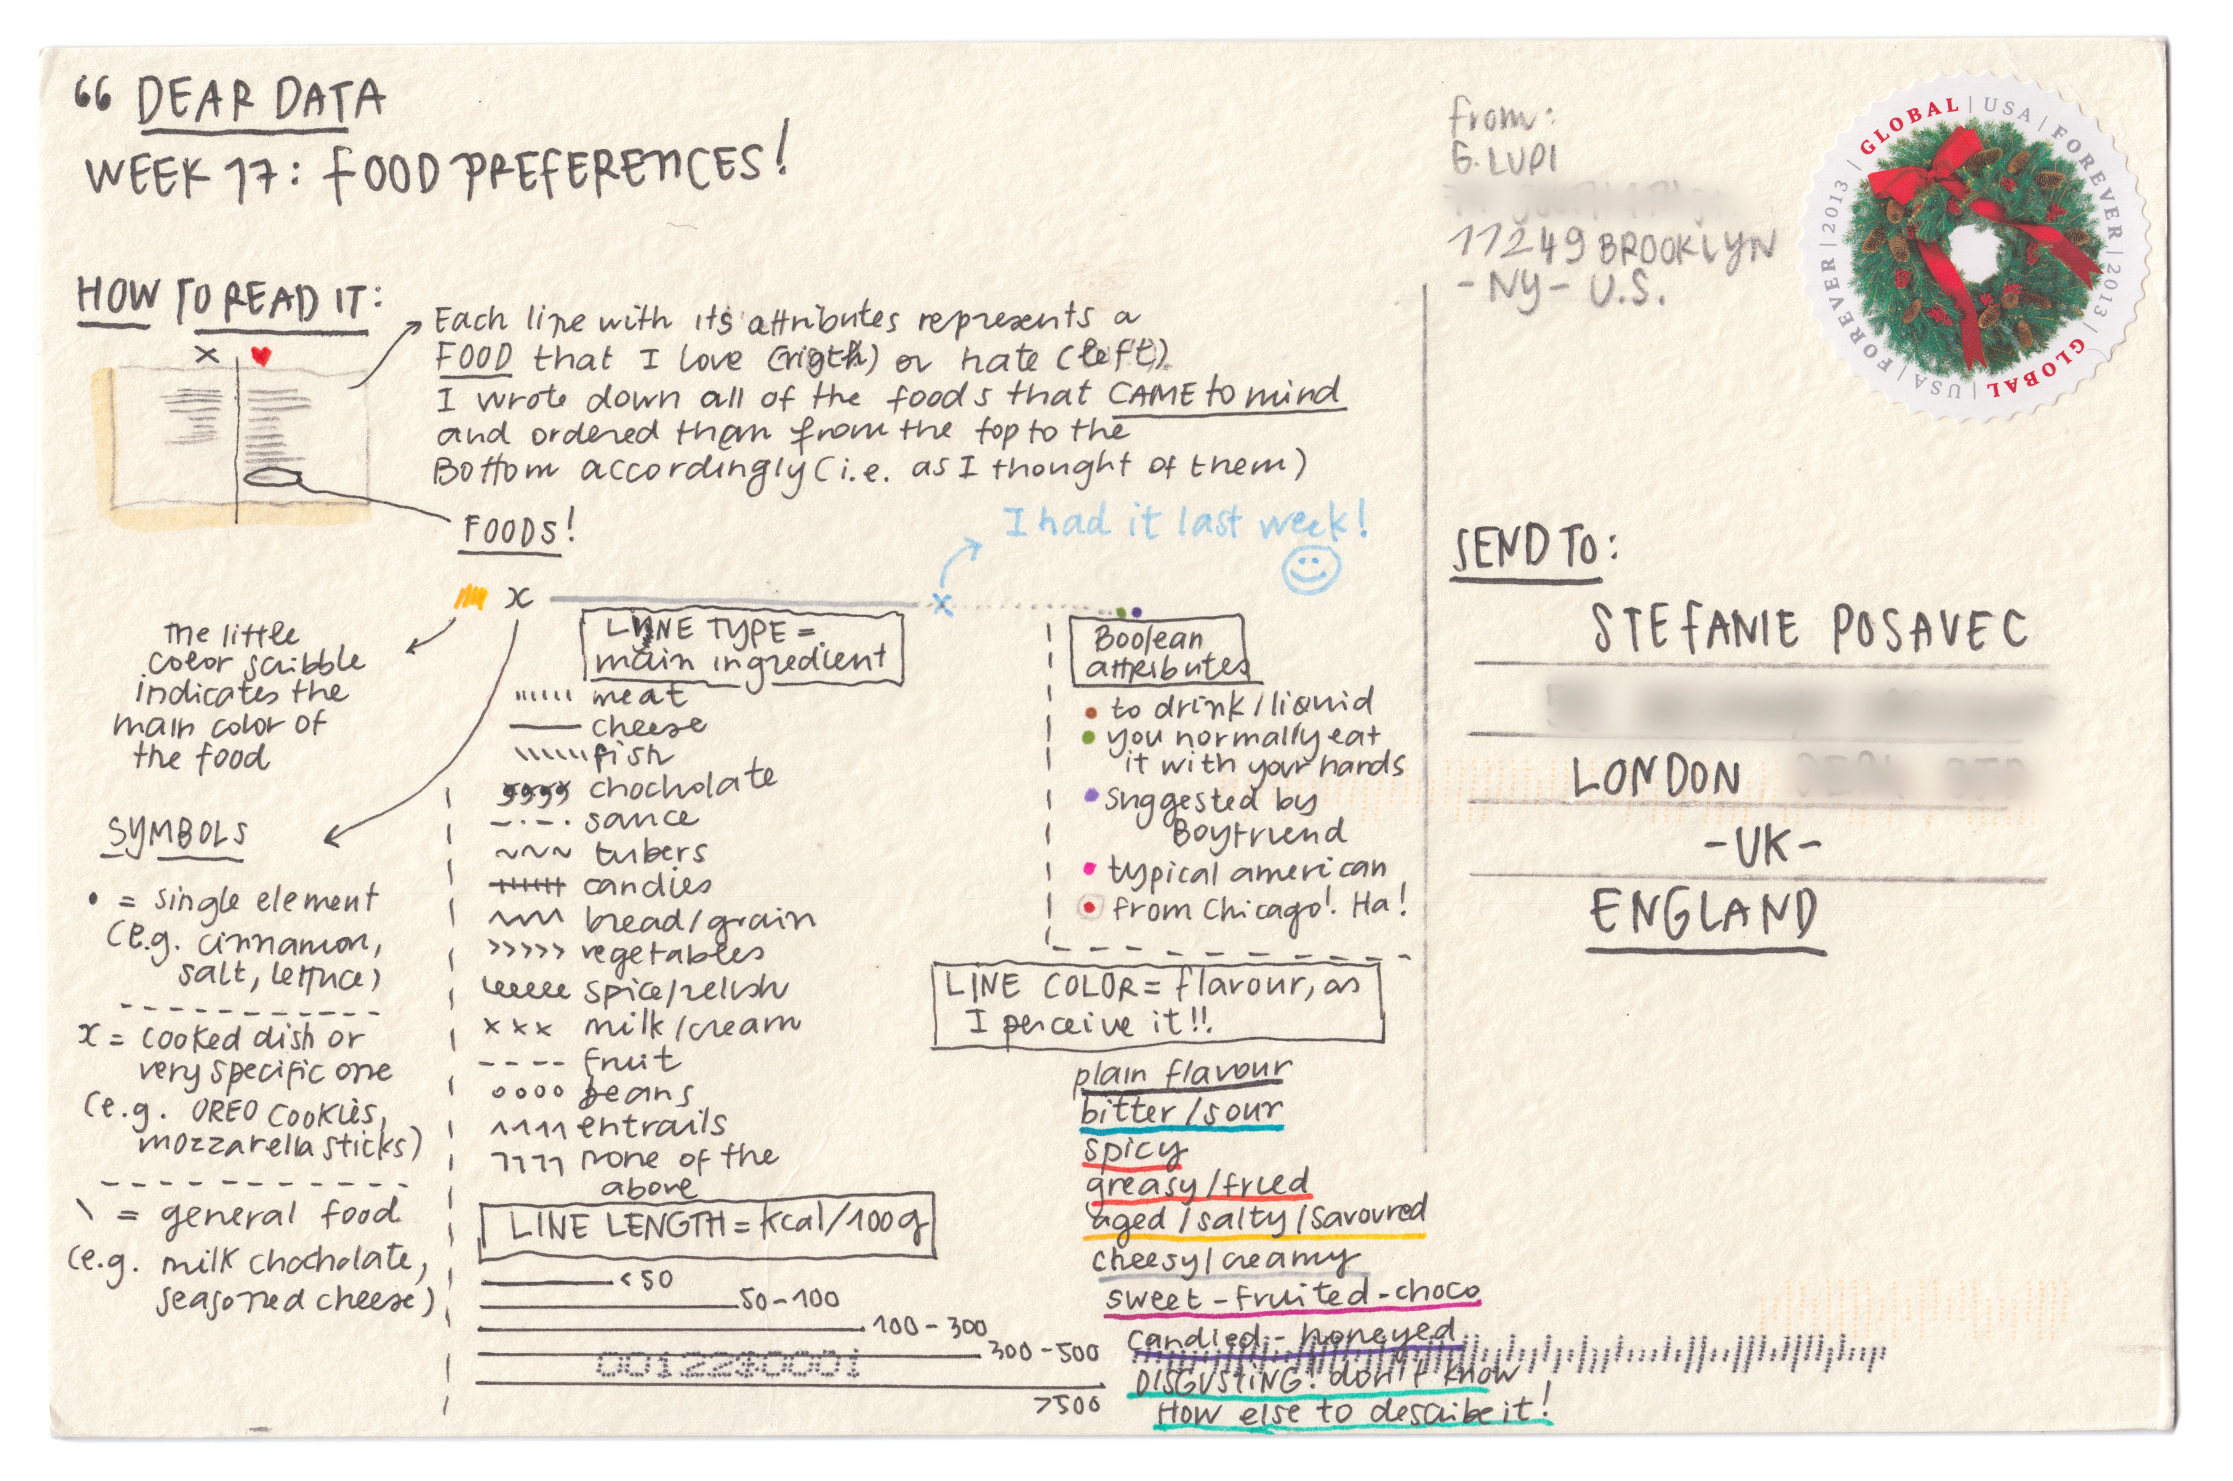 “ DEAR DATA
WEEK 17: FOOD PREFERENCES!
HOW TO READ IT:
x ♥
Each line with its attributes represents a
FOOD that I love (rigth) or hate (left).
I wrote down all of the foods that CAME to mind
and ordered them from the top to the
Bottom accordingly (i.e. as I thought of them)
FOODS!
I had it last week!
x
x
The little
color scribble
indicates the
main color of
the food
SYMBOLS
• = single element
(e.g. cinnamon,
salt, lettuce)
x = cooked dish or
very specific one
(e.g. OREO cookies,
mozzarella sticks)
\ = general food
(e.g. milk chocholate,
seasoned cheese)
LINE TYPE =
main ingredient
meat
cheese
fish
chocholate
sauce
tubers
candies
bread/grain
vegetables
spice/relish
milk/cream
fruit
beans
entrails
none of the
above
LINE LENGTH = Kcal/100g
<50
50-100
100-300
300-500
>500
0012240001
Boolean
attributes
to drink/liquid
you normally eat
it with your hands
suggested by
Boyfriend
typical american
from Chicago! Ha!
LINE COLOR = flavour, as
I perceive it!!
plain flavour
bitter/sour
spicy
greasy/fried
aged/salty/savoured
cheesy/creamy
sweet-fruited-choco
candied-honeyed
DISGUSTING! don't know
How else to describe it!
from:
G. LUPI
11249 BROOKLYN
-NY- U.S.
GLOBAL | USA | FOREVER | 2013 | GLOBAL | USA | FOREVER | 2013 |
SEND TO:
STEFANIE POSAVEC
LONDON
-UK-
ENGLAND